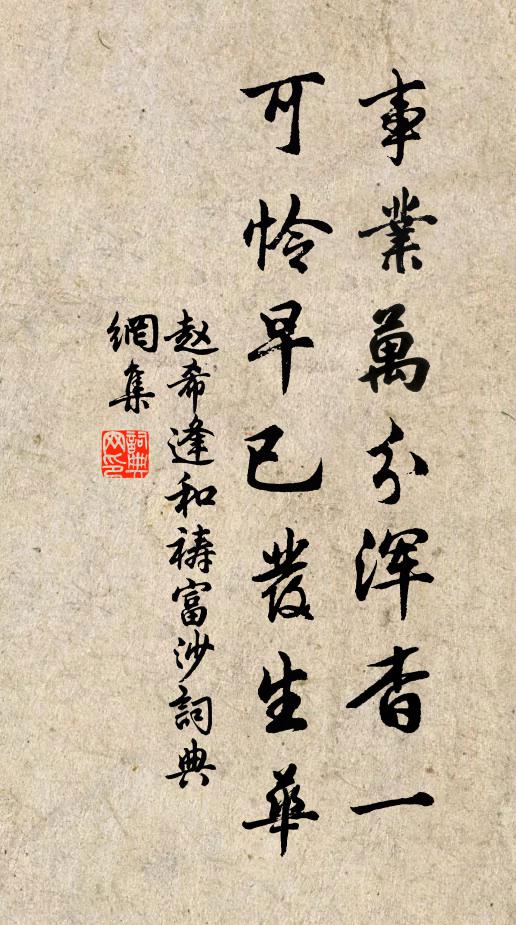 事業萬分渾杳一
可怜早已發生華
赵希逢和禱富沙詞典
網集
詞典
网印